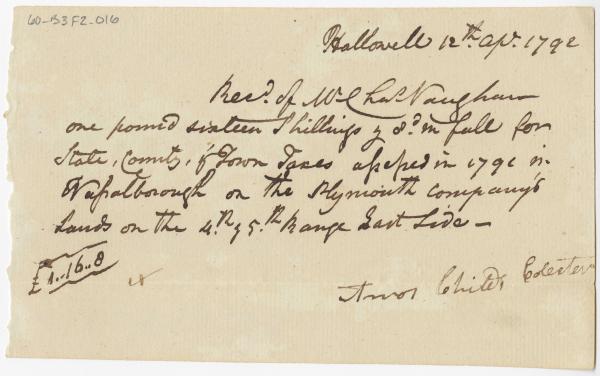 60-B3F2-016
Hallowell 12th. Apr. 1792
Recd. of Mr. Chas. Vaughan
one pound sixteen Shillings & 8d. in full for
State, County, & Town Taxes assessed in 1791 in
Vassalborough on the Plymouth Company's
Lands on the 4th. & 5th. Range East Side —
£1..16..8
Amos Childs